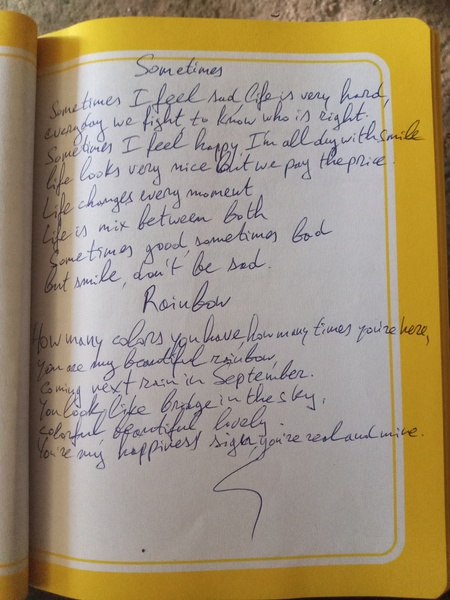 Sometimes
Sometimes I feel sad, life is very hard,
everyday we fight to know who is right.
Sometimes I feel happy, I'm all day with smile
life looks very nice but we pay the price.
Life changes every moment
Life is mix between both
Sometimes good, sometimes bad
but smile, don't be sad.
Rainbow
How many colors you have, how many times you're here,
You are my beautiful rainbow,
coming next rain in September.
You look like bridge in the sky,
colorful beautiful lovely.
You're my happiness sign, you're real and mine.